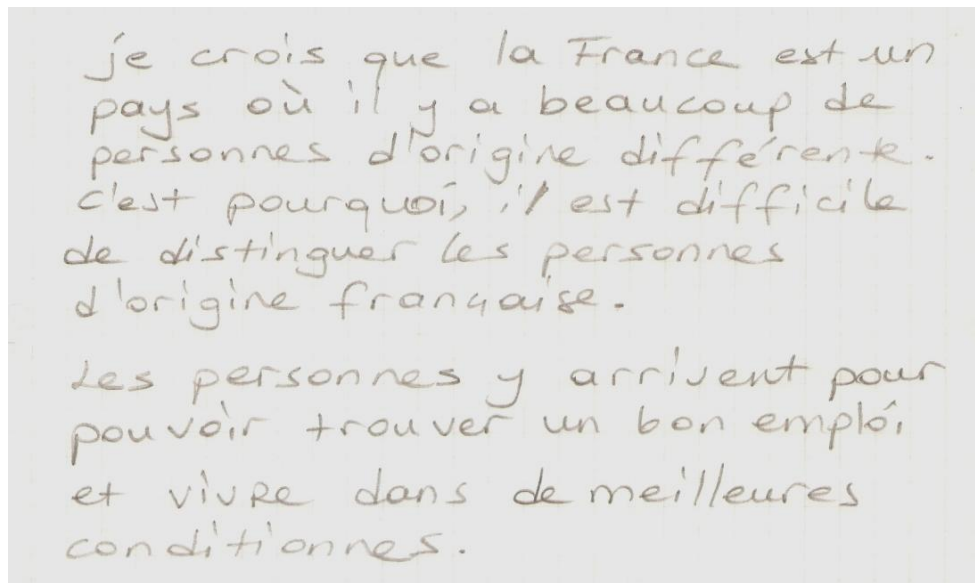 je crois que la France est un
pays où il y a beaucoup de
personnes d'origine différente.
c'est pourquoi, il est difficile
de distinguer les personnes
d'origine française.
Les personnes y arrivent pour
pouvoir trouver un bon emploi
et vivre dans de meilleures
conditionnes.